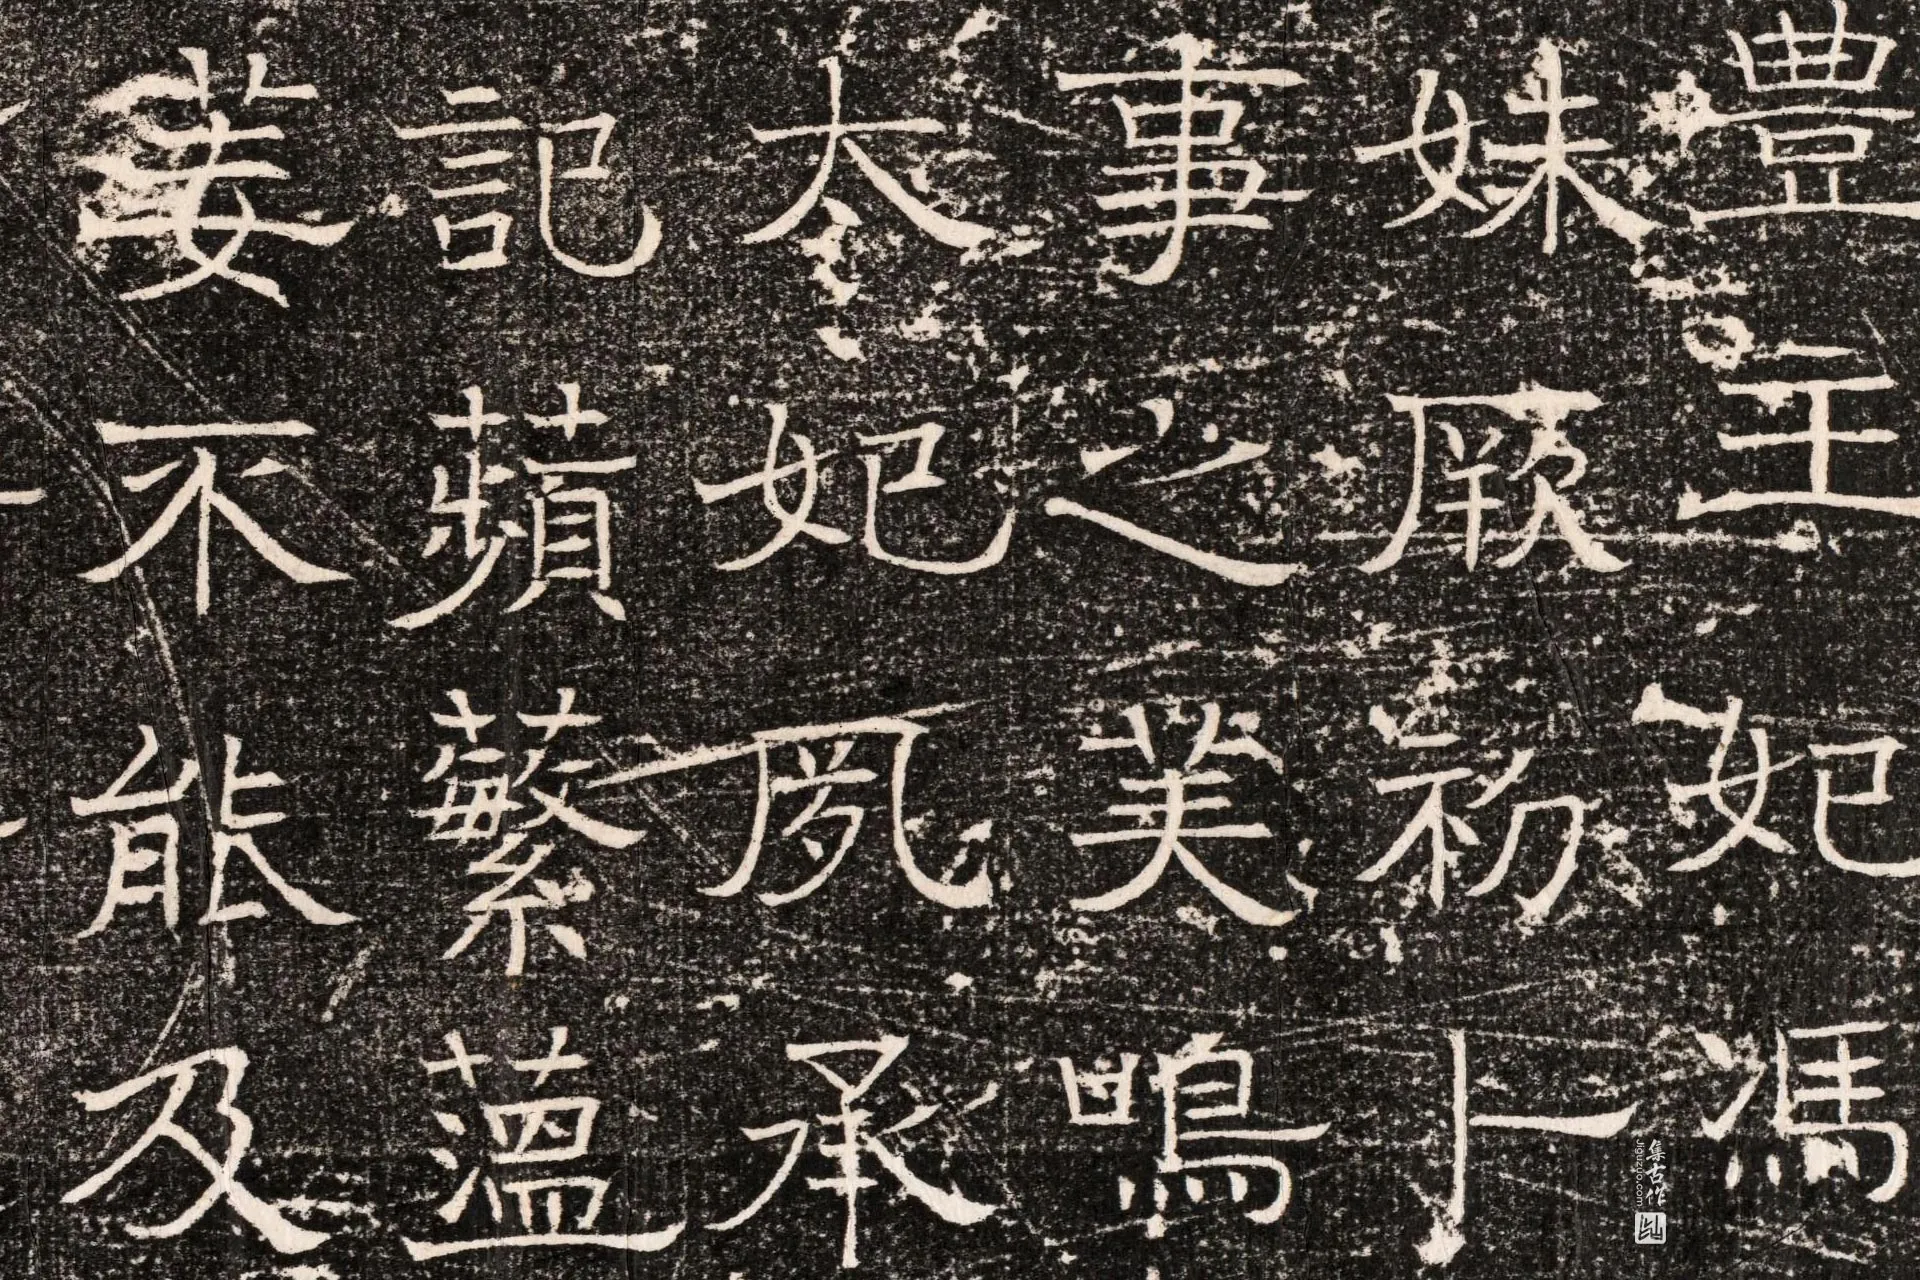 豊王妃馮
妹厥初卜
事之美鳴
太妃夙承
記蘋蘩薀
萋不能及
集古作
jiguzuo.com